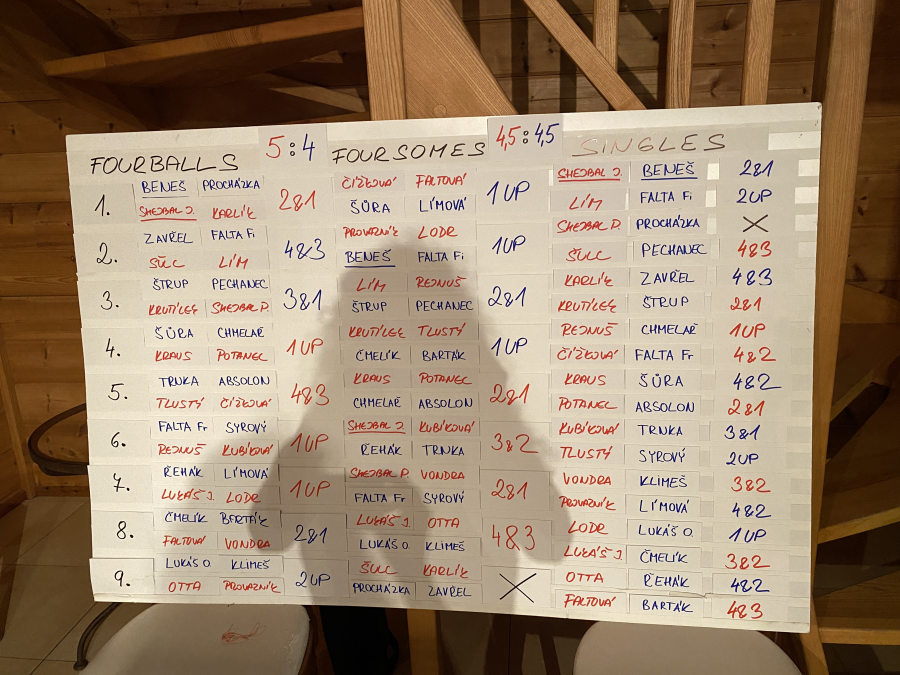 FOURBALLS 5:4
1. BENEŠ PROCHÁZKA 2&1
SHEJBAL J. KARLÍK
2. ZAVŘEL FALTA Fi 4&3
ŠULC LÍM
3. ŠTRUP PECHANEC 3&1
KRUTÍLEK SHEJBAL P.
4. ŠŮRA CHMELAŘ 1UP
KRAUS POTANEC
5. TRNKA ABSOLON 4&3
TLUSTÝ ČÍŽKOVÁ
6. FALTA Fr SYROVÝ 1UP
REJNUŠ KUBÍKOVÁ
7. ŘEHÁK LÍMOVÁ 1UP
LUKÁŠ J. LODR
8. ČMELÍK BARTÁK 2&1
FALTOVÁ VONDRA
9. LUKÁŠ O. KLIMEŠ 2UP
OTTA PROVAZNÍK
FOURSOMES 4,5:4,5
ČÍŽKOVÁ FALTOVÁ 1UP
ŠŮRA LÍMOVÁ
PROVAZNÍK LODR 1UP
BENEŠ FALTA Fi
LÍM REJNUŠ 2&1
ŠTRUP PECHANEC
KRUTÍLEK TLUSTÝ 1UP
ČMELÍK BARTÁK
KRAUS POTANEC 2&1
CHMELAŘ ABSOLON
SHEJBAL J. KUBÍKOVÁ 3&2
ŘEHÁK TRNKA
SHEJBAL P. VONDRA 2&1
FALTA Fr SYROVÝ
LUKÁŠ J. OTTA 4&3
LUKÁŠ O. KLIMEŠ
ŠULC KARLÍK X
PROCHÁZKA ZAVŘEL
SINGLES
SHEJBAL J. BENEŠ 2&1
LÍM FALTA Fi 2UP
SHEJBAL P. PROCHÁZKA X
ŠULC PECHANEC 4&3
KARLÍK ZAVŘEL 4&3
KRUTÍLEK ŠTRUP 2&1
REJNUŠ CHMELAŘ 1UP
ČÍŽKOVÁ FALTA Fr 4&2
KRAUS ŠŮRA 4&2
POTANEC ABSOLON 2&1
KUBÍKOVÁ TRNKA 3&1
TLUSTÝ SYROVÝ 2UP
VONDRA KLIMEŠ 3&2
PROVAZNÍK LÍMOVÁ 4&2
LODR LUKÁŠ O. 1UP
LUKÁŠ J. ČMELÍK 3&2
OTTA ŘEHÁK 4&2
FALTOVÁ BARTÁK 4&3